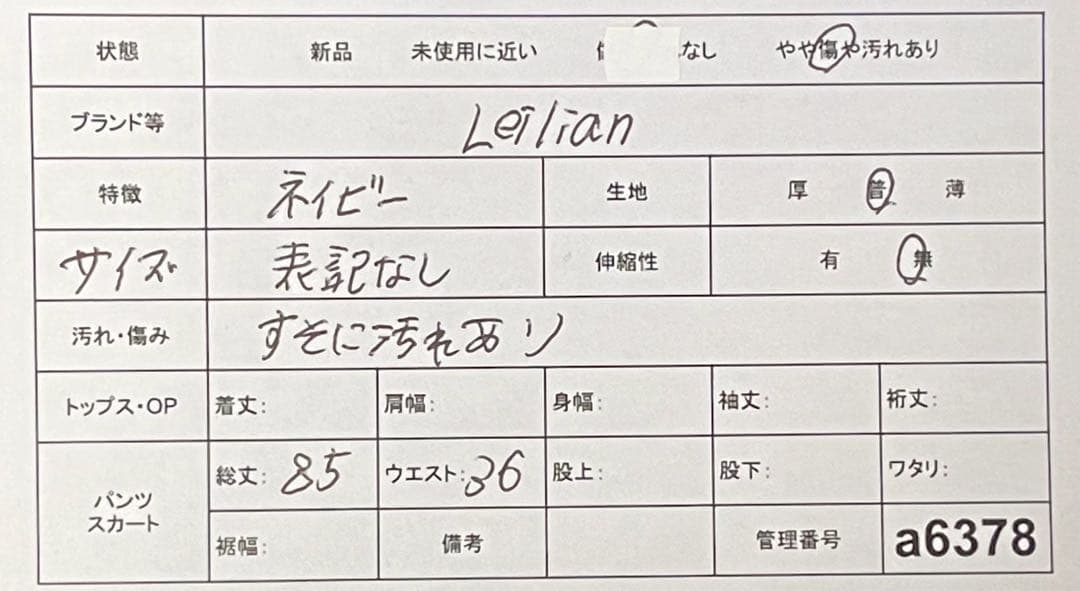 状態 新品 未使用に近い なし やや傷や汚れあり
ブランド等 Leilian
特徴 ネイビー 生地 厚 普 薄
サイズ 表記なし 伸縮性 有 無
汚れ・傷み すそに汚れあり
トップス・OP 着丈: 肩幅: 身幅: 袖丈: 裄丈:
パンツ
スカート
総丈: 85 ウエスト: 36 股上: 股下: ワタリ:
裾幅: 備考 管理番号 a6378